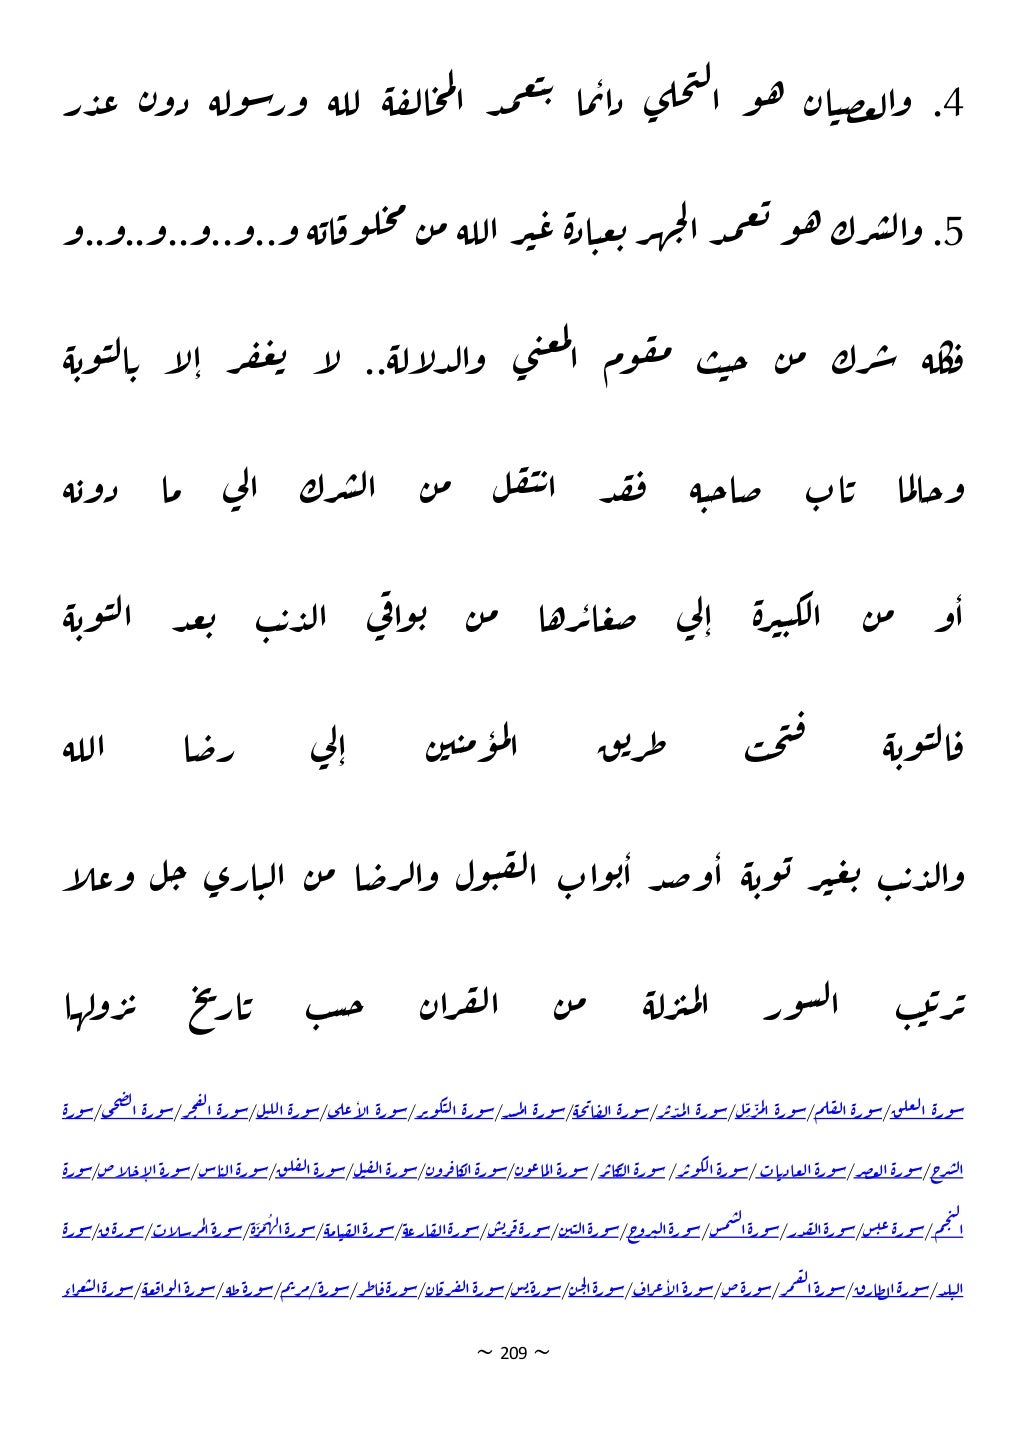 4. والعصيان هو التحلي دائما بتعمد المخالفة لله ورسوله دون عذر
5. والشرك هو تعمد الجهر بعبادة غير الله من مخلوقاته و..و..و..و..و..و
فكله شرك من حيث مقوم المعني والدلالة.. لا يغفر إلا بالتوبة
وحالما تاب صاحبه فقد انتقل من الشرك الي ما دونه
أو من الكبيرة إلي صغائرها من بواقي الذنب بعد التوبة
فالتوبة فتحت طريق المؤمنين إلي رضا الله
والذنب بغير توبة أوصد أبواب القبول والرضا من الباري جل وعلا
ترتيب السور المنزلة من القران حسب تاريخ نزولها
سورة العلق/سورة القلم/سورة المزّمّل/سورة المدّثر/سورة الفاتحة/سورة المسد/سورة التكوير/سورة الأعلى/سورة الليل/سورة الفجر/سورة الضحى/سورة
الشرح/سورة العصر/سورة العاديات /سورة الكوثر/ سورة التكاثر/ سورة الماعون/سورة الكافرون/سورة الفيل/سورة الفلق/سورة الناس/سورة الإخلاص/سورة
النجم/سورة عبس/سورة القدر/سورة الشمس/سورة البروج/سورة التين/سورة قريش/سورة القارعة/سورة القيامة/سورة الهُمَزَة/سورة المرسلات/سورة ق/سورة
البلد/سورة الطارق/سورة القمر/سورة ص/سورة الأعراف/سورة الجن/سورة يس/سورة الفرقان/سورة فاطر/سورة/مريم/سورة طه/سورة الواقعة/سورة الشعراء
~ 209 ~